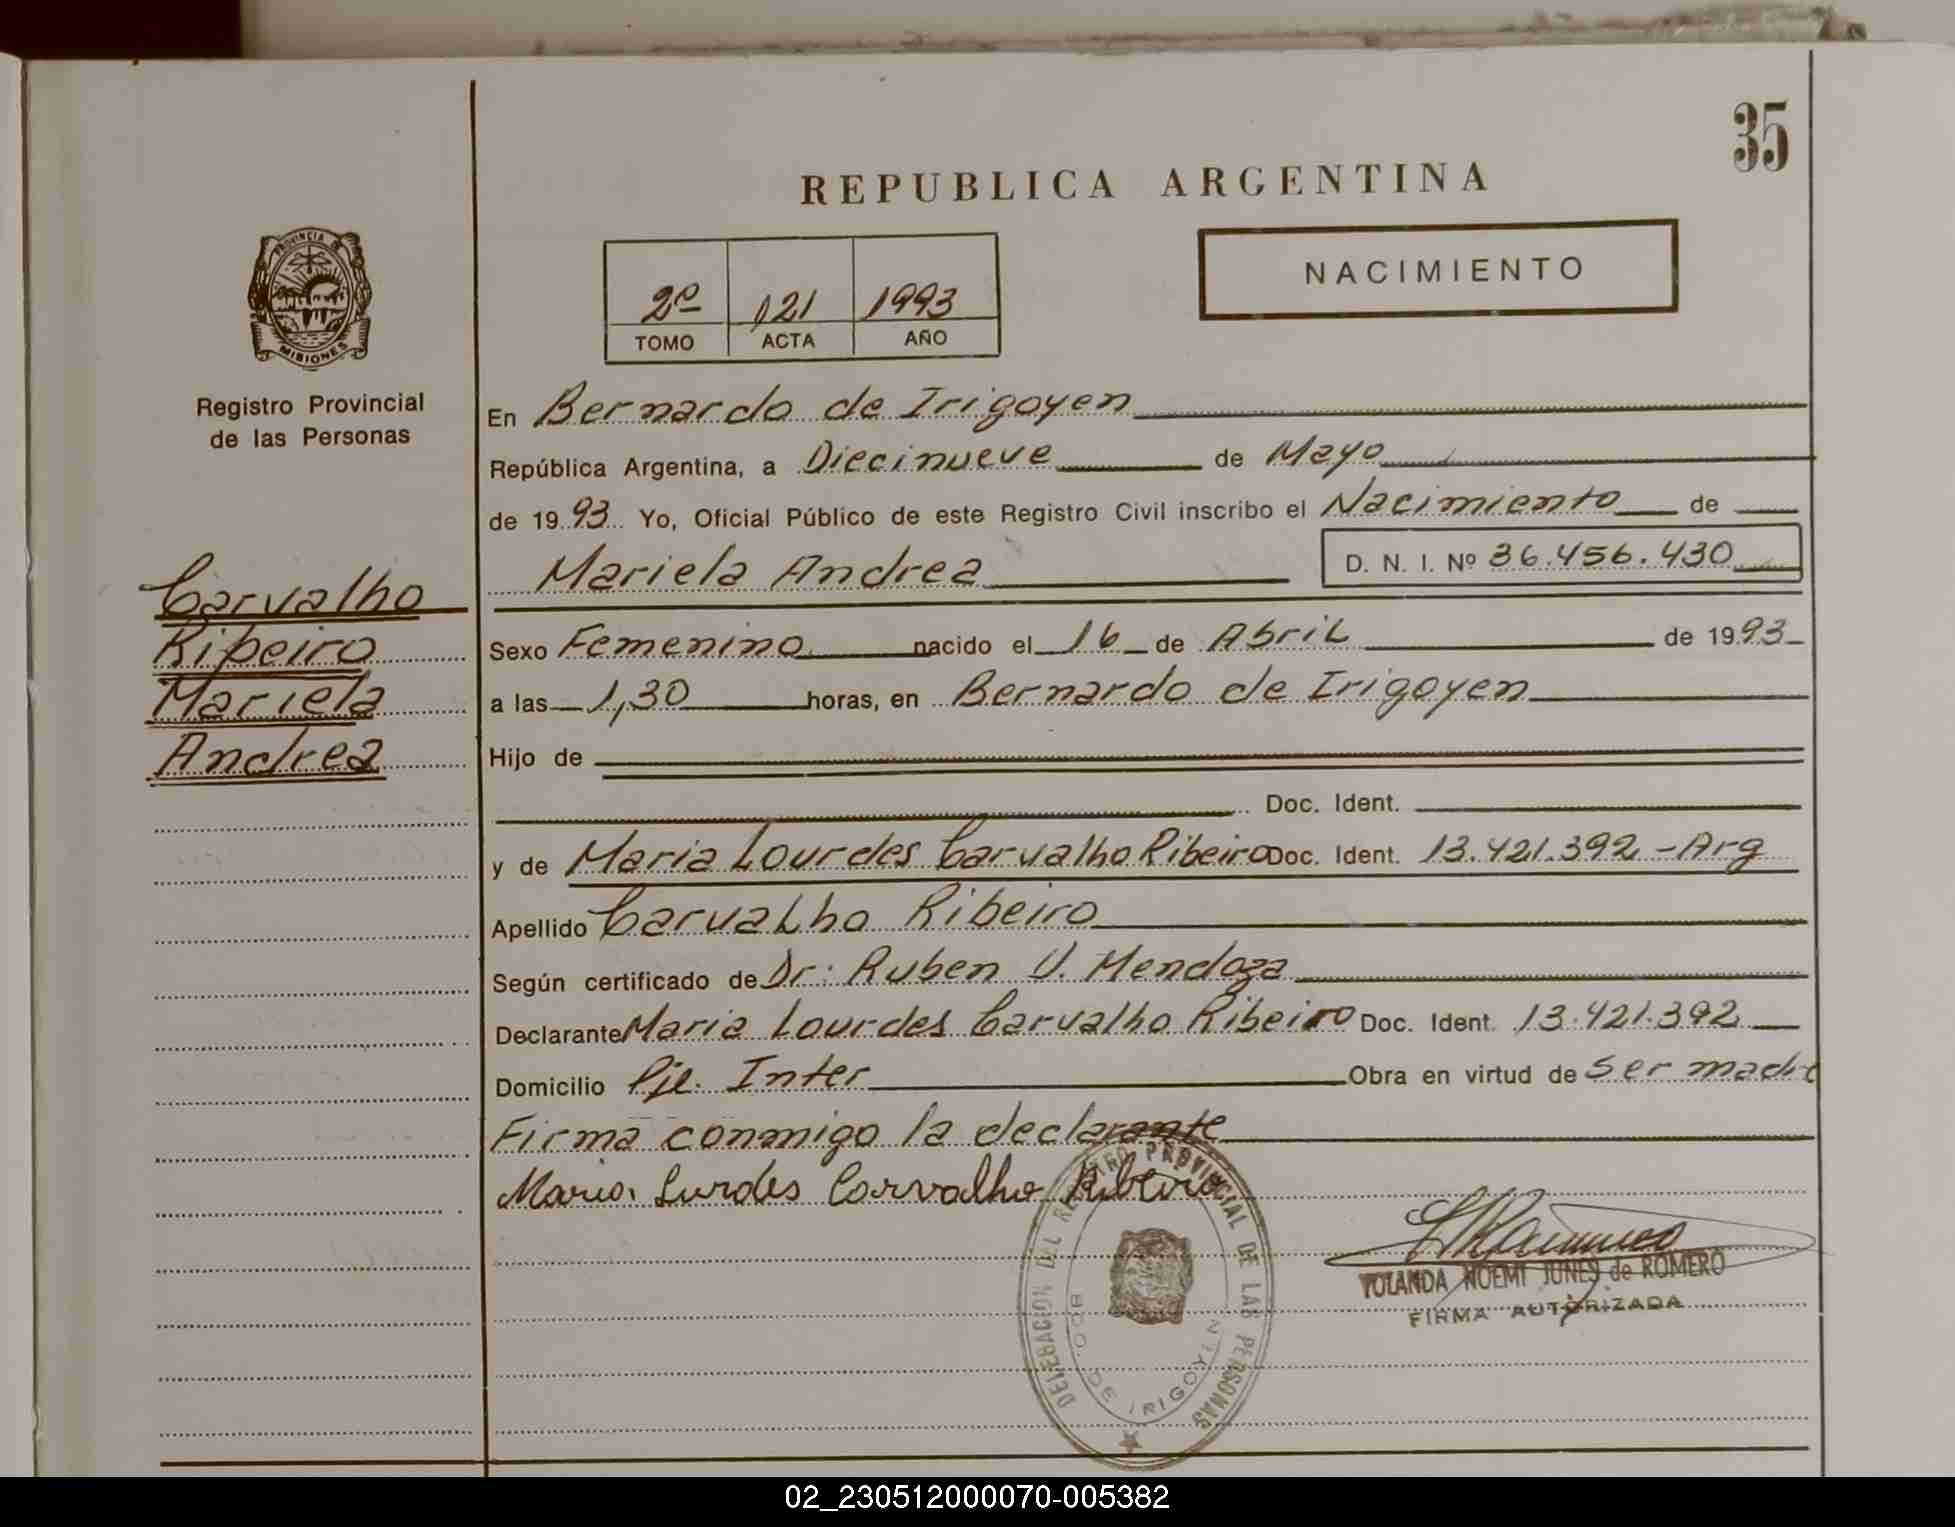 35
REPUBLICA ARGENTINA
PROVINCIA DE
MISIONES
2º 121 1993
TOMO ACTA AÑO
NACIMIENTO
Registro Provincial
de las Personas
Carvalho
Ribeiro
Mariela
Andrea
En Bernardo de Irigoyen
República Argentina, a Diecinueve de Mayo
de 1993 Yo, Oficial Público de este Registro Civil inscribo el Nacimiento de
Mariela Andrea D. N. I. Nº 36.456.430
Sexo Femenino nacido el 16 de Abril de 1993
a las 1,30 horas, en Bernardo de Irigoyen
Hijo de
Doc. Ident.
y de Maria Lourdes Carvalho Ribeiro Doc. Ident. 13.421.392 - Arg
Apellido Carvalho Ribeiro
Según certificado de Dr: Ruben V. Mendoza
Declarante Maria Lourdes Carvalho Ribeiro Doc. Ident. 13.421.392
Domicilio Pje. Inter Obra en virtud de Ser madre
Firma conmigo la declarante
Maria Lurdes Carvalho Ribeiro
DELEGACION DEL REGISTRO PROVINCIAL DE LAS PERSONAS
BDO. DE IRIGOYEN
YOLANDA NOEMI JUNES de ROMERO
FIRMA AUTORIZADA
02_230512000070-005382